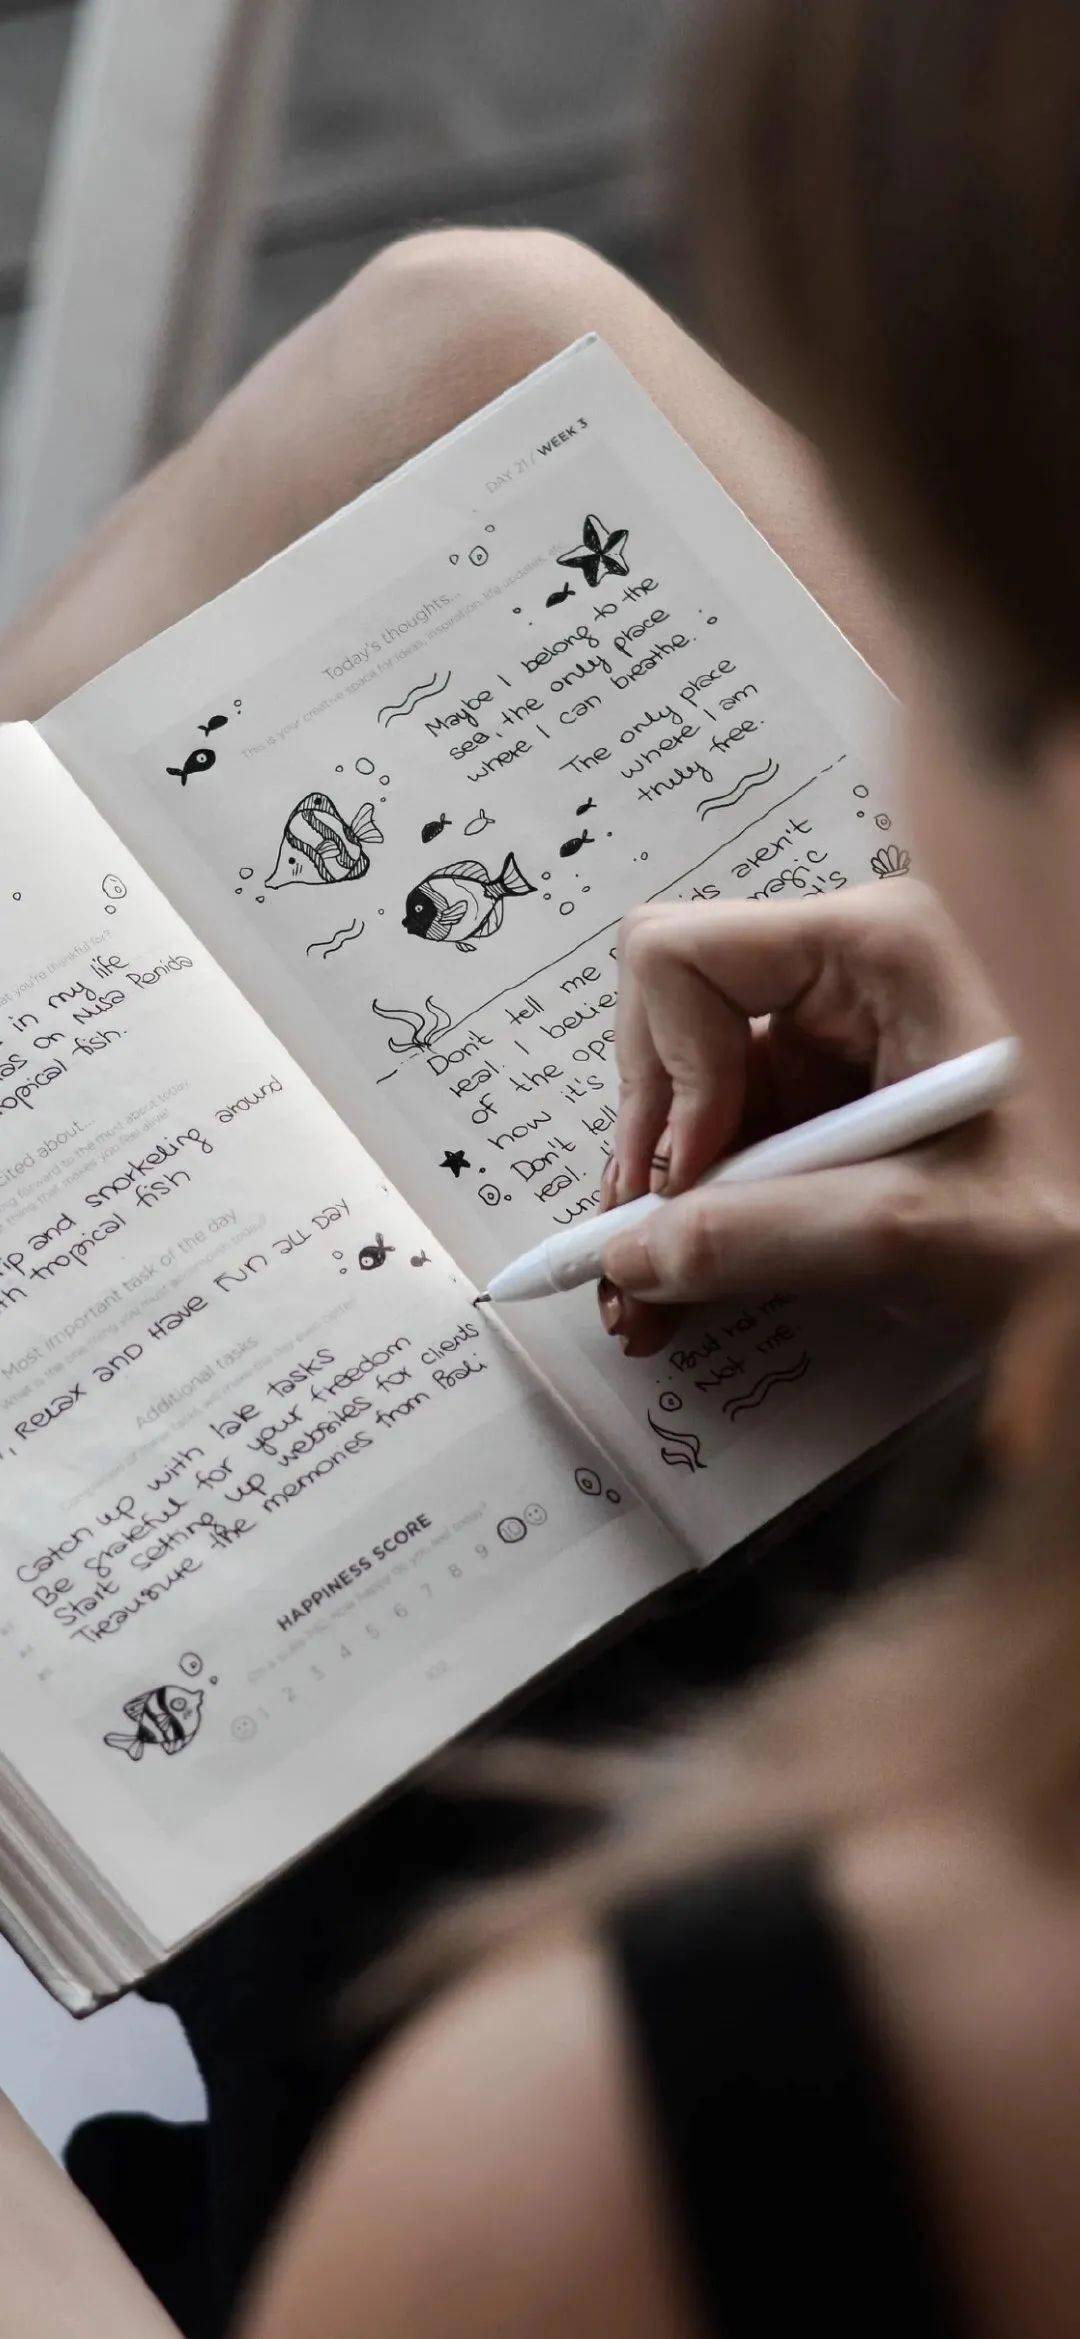 at you're thankful for?
in my life
as on Nusa Penida
opical fish.
cited about...
ng forward to the most about today
thing that makes you feel alive!
ip and snorkeling around
th tropical fish
Most important task of the day
What is the one thing you must accomplish today?
, RELAX AND HAVE FUN ALL DAY
Additional tasks
Catch up with late tasks
Be grateful for your freedom
Start setting up websites for clients
Treasure the memories from Bali
HAPPINESS SCORE
On a scale how happy do you feel today?
1 2 3 4 5 6 7 8 9 10
102
DAY 21 / WEEK 3
Today's thoughts...
This is your creative space for ideas, inspiration, life updates, etc.
Maybe I belong to the
sea, the only place
where I can breathe.
The only place
where I am
truly free.
ds aren't
magic
it's
Don't tell me
real. I belie
of the ope
how it's
Don't tell
real.
But not me.
Not me.